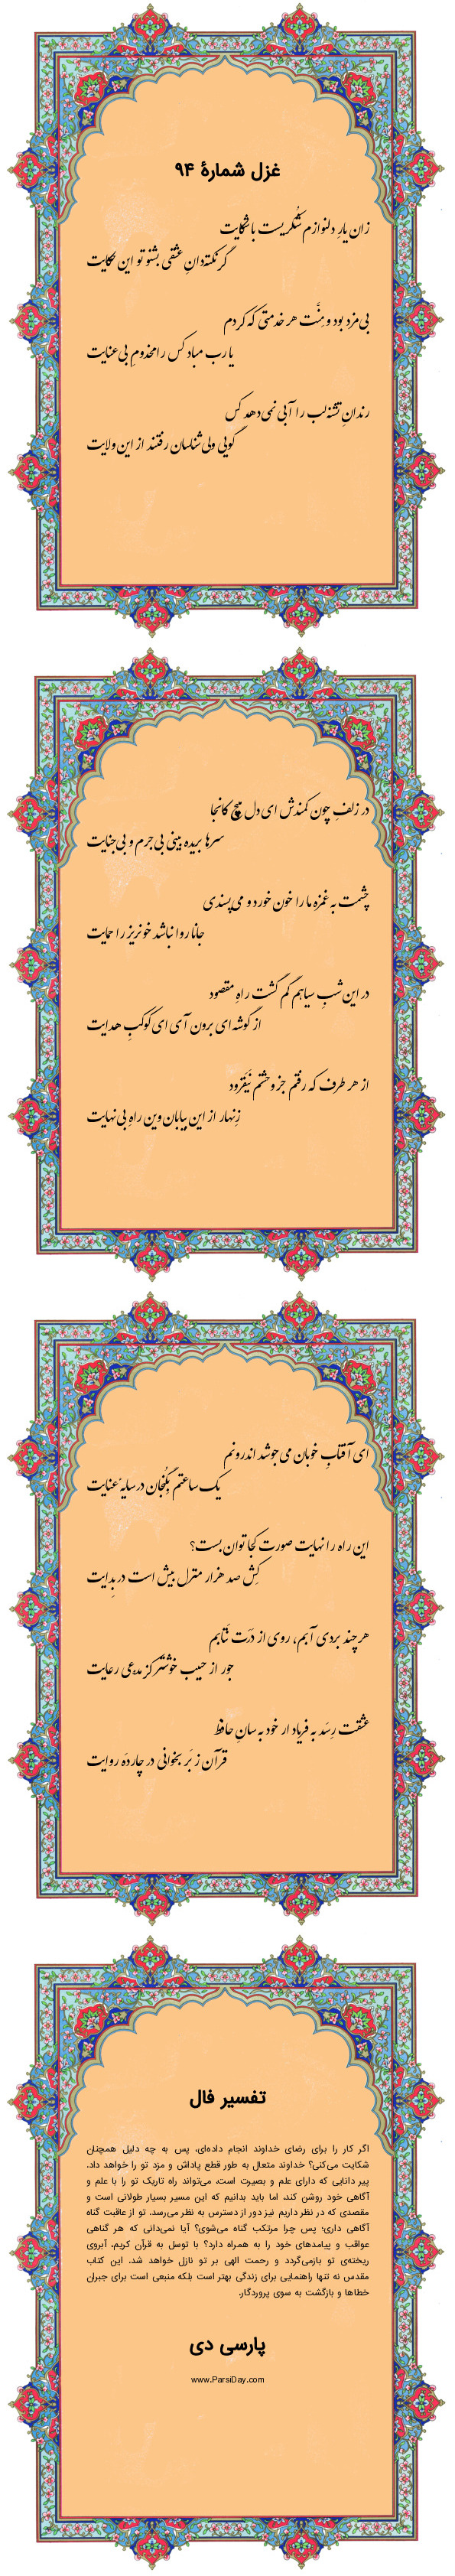 غزل شمارهٔ ۹۴
زان یارِ دلنوازم شُکریست با شکایت
گر نکته‌دانِ عشقی بشنو تو این حکایت
بی‌مزد بود و مِنَّت هر خدمتی که کردم
یا رب مباد کس را مخدومِ بی‌عنایت
رندانِ تشنه‌لب را آبی نمی‌دهد کس
گویی ولی‌شناسان رفتند از این ولایت
در زلفِ چون کمندش ای دل مپیچ کانجا
سرها بریده بینی بی‌جرم و بی‌جنایت
چشمت به غمزه ما را خون خورد و می‌پسندی
جانا روا نباشد خونریز را حمایت
در این شبِ سیاهم گم گشت راهِ مقصود
از گوشه‌ای برون آی ای کوکبِ هدایت
از هر طرف که رفتم جز وحشتم نَیَفزود
زنهار از این بیابان وین راهِ بی‌نهایت
ای آفتابِ خوبان می‌جوشد اندرونم
یک ساعتم بِگُنجان در سایهٔ عنایت
این راه را نهایت صورت کجا توان بست؟
کِش صد هزار منزل بیش است در بِدایت
هر چند بردی آبم، روی از دَرَت نَتابم
جور از حبیب خوشتر کز مدعی رعایت
عشقت رِسَد به فریاد ار خود به سانِ حافظ
قرآن ز بَر بخوانی در چارده روایت
تفسیر فال
اگر کار را برای رضای خداوند انجام داده‌ای، پس به چه دلیل همچنان
شکایت می‌کنی؟ خداوند متعال به طور قطع پاداش و مزد تو را خواهد داد.
پیر دانایی که دارای علم و بصیرت است، می‌تواند راه تاریک تو را با علم و
آگاهی خود روشن کند، اما باید بدانیم که این مسیر بسیار طولانی است و
مقصدی که در نظر داریم نیز دور از دسترس به نظر می‌رسد. تو از عاقبت گناه
آگاهی داری؛ پس چرا مرتکب گناه می‌شوی؟ آیا نمی‌دانی که هر گناهی
عواقب و پیامدهای خود را به همراه دارد؟ با توسل به قرآن کریم، آبروی
ریخته‌ی تو بازمی‌گردد و رحمت الهی بر تو نازل خواهد شد. این کتاب
مقدس نه تنها راهنمایی برای زندگی بهتر است بلکه منبعی است برای جبران
خطاها و بازگشت به سوی پروردگار.
پارسی دی
www.ParsiDay.com